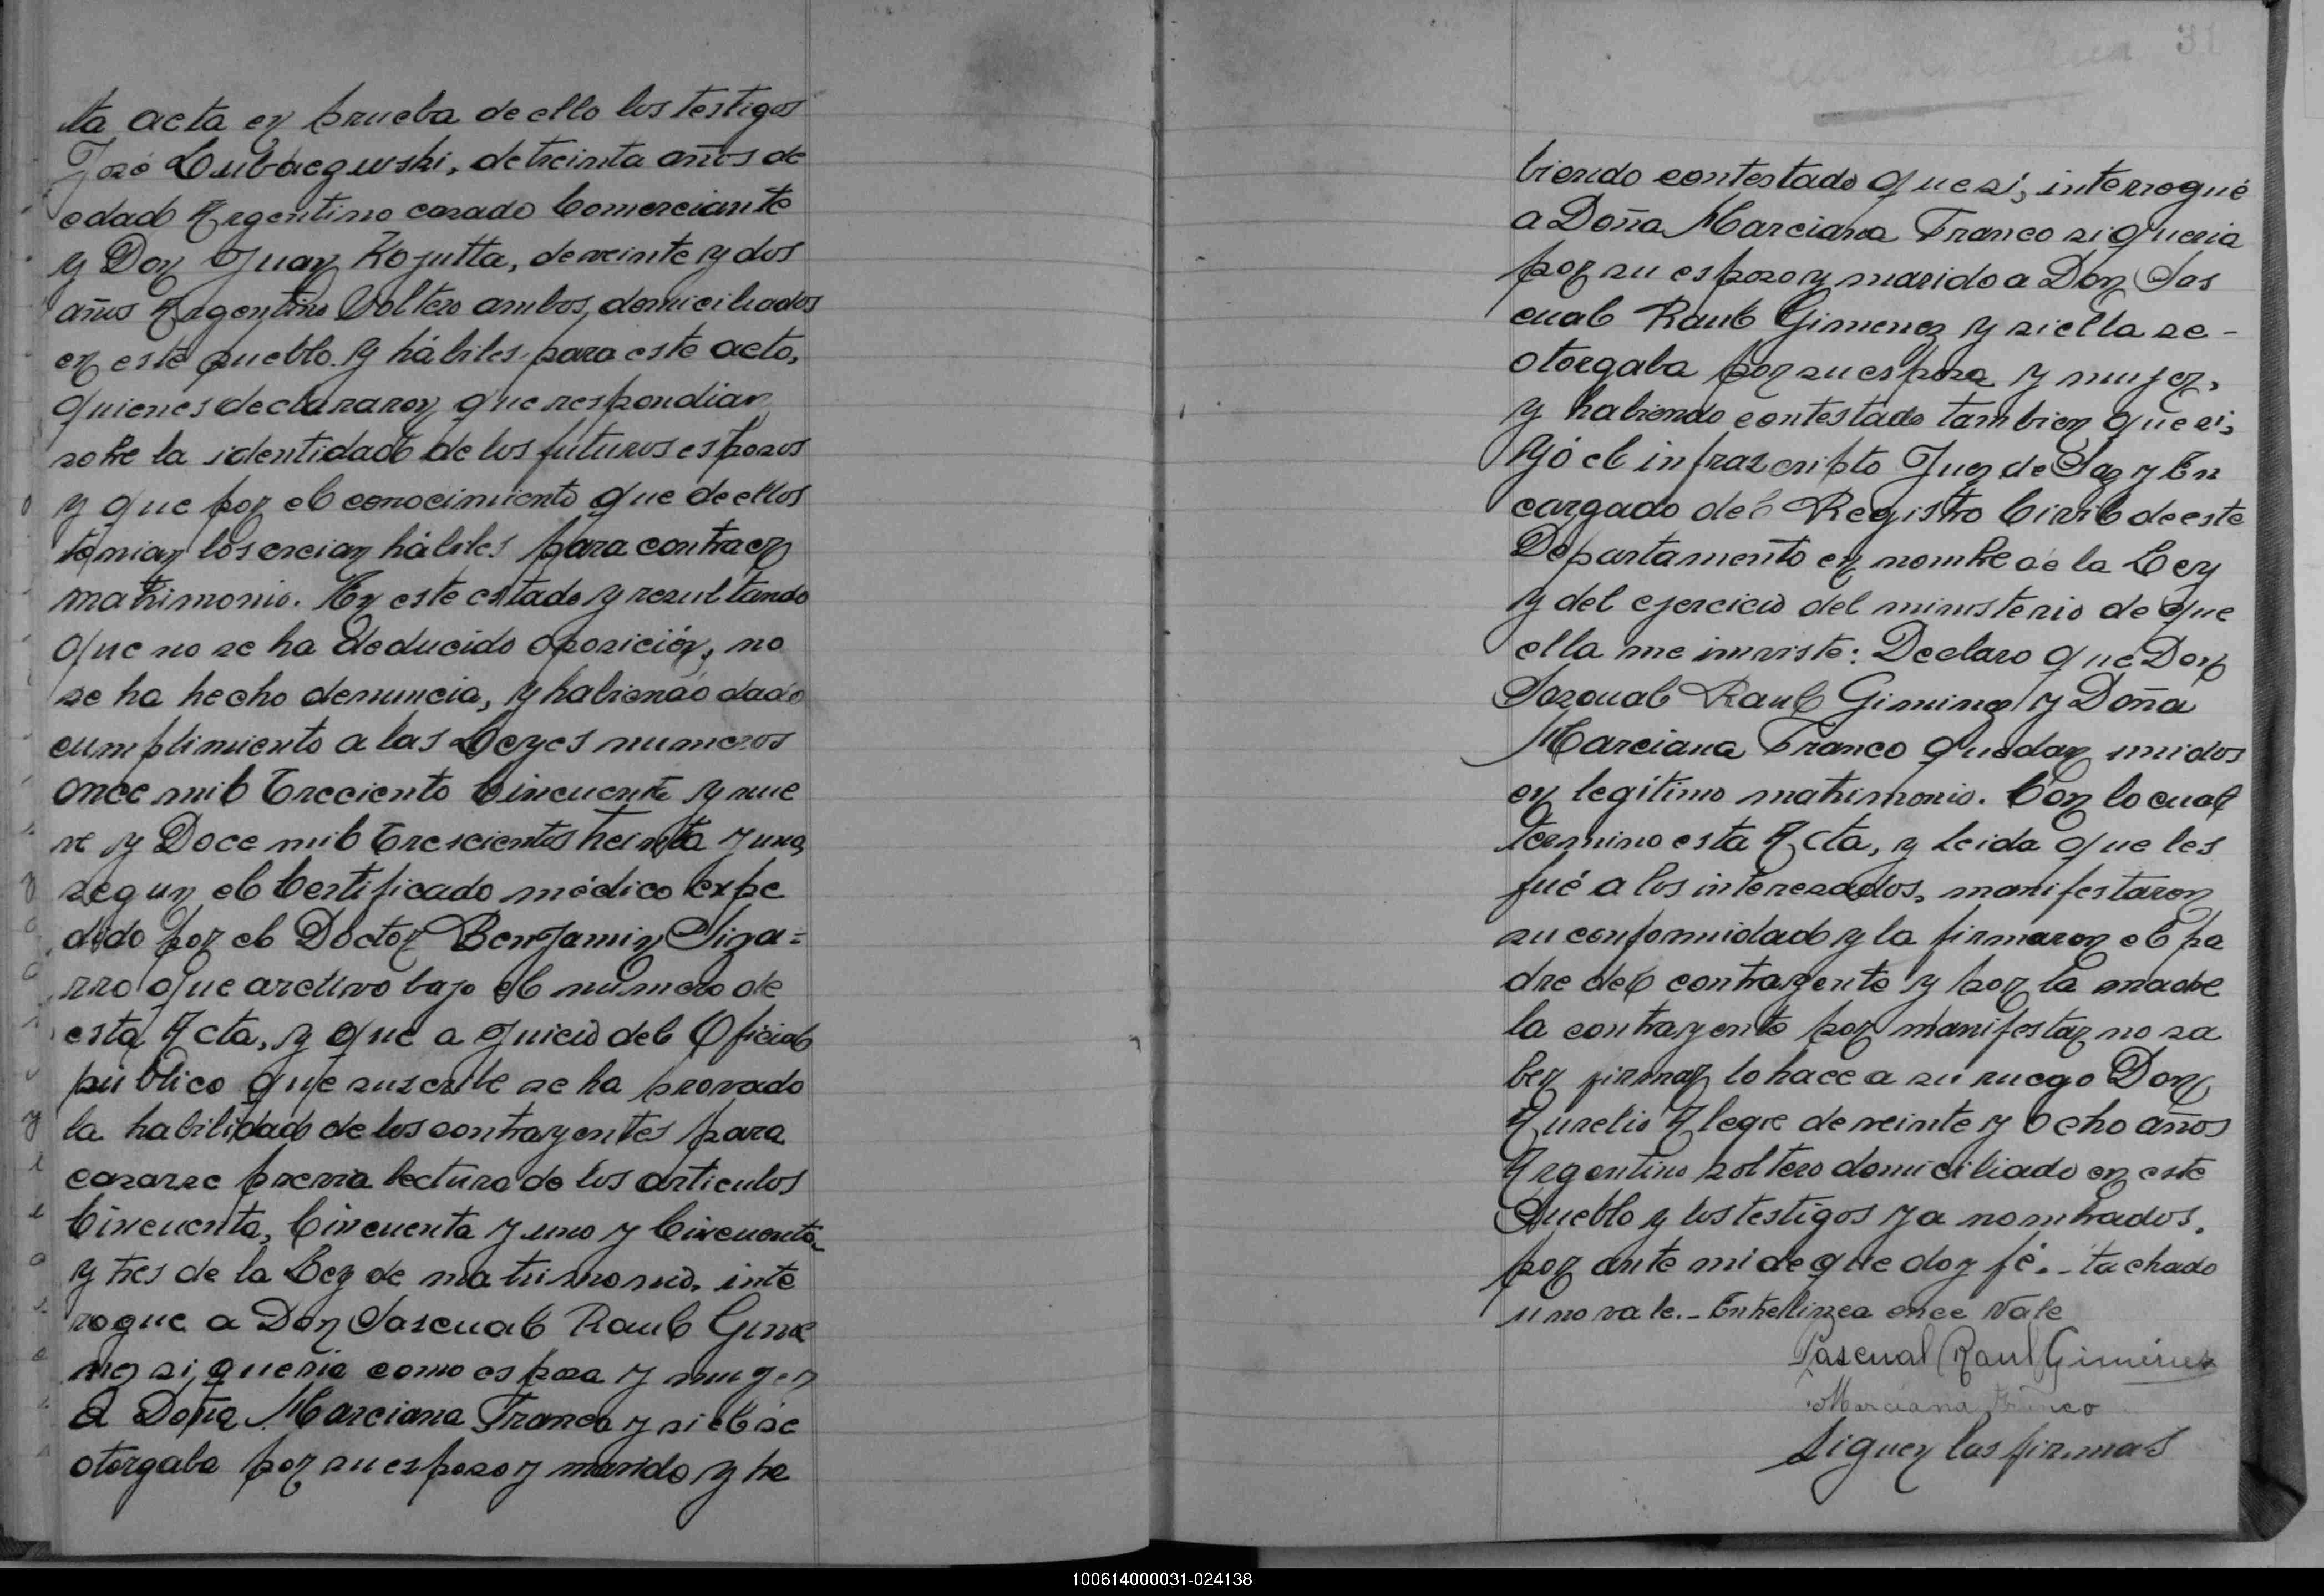 ta acta en prueba de ello los testigos
José Lubaczewski, de treinta años de
edad Argentino casado Comerciante
y Don Juan Kojutta, de veinte y dos
años Argentino Soltero ambos, domiciliados
en este pueblo y hábiles para este acto,
quienes declararon que respondian
sobre la identidad de los futuros esposos
y que por el conocimiento que de ellos
tenian los creian hábiles para contraer
matrimonio. En este estado y resultando
que no se ha deducido oposición, no
se ha hecho denuncia, y habiendo dado
cumplimiento a las Leyes numeros
once mil Trecciento Cincuenta y nue
ve y Doce mil Trescientos treinta y uno,
segun el Certificado médico expe
dido por el Doctor Benjamin Piza=
rro que archivo bajo el número de
esta Acta, y que a juicio del Oficial
público que suscribe se ha provado
la habilidad de los contrayentes para
casarse previa lectura de los articulos
Cincuenta, Cincuenta y uno y Cincuenta
y tres de la Ley de matrimonio, inte
rogue a Don Pascual Raul Gime
nez si queria como esposa y muger
a Doña Marciana Franco y si el se
otorgaba por su esposo y marido y ha
31
biendo contestado que si, interrogué
a Doña Marciana Franco si queria
por su esposo y marido a Don Pas
cual Raul Gimenez y si ella se -
otorgaba por su esposa y mujer,
y habiendo contestado tambien que si,
Yó el infrascripto Juez de Paz y En
cargado del Registro Civil de este
Departamento en nombre de la Ley
y del ejercicio del ministerio de que
ella me inviste: Declaro que Don
Pascual Raul Giminez y Doña
Marciana Franco quedan unidos
en legítimo matrimonio. Con lo cual
termino esta Acta, y leida que les
fué a los interesados, manifestaron
su conformidad y la firmaron el pa
dre del contrayente y por la madre
la contrayente por manifestar no sa
ber firmar lo hace a su ruego Don
Aurelio Alegre de veinte y Ocho años
Argentino soltero domiciliado en este
Pueblo y los testigos ya nombrados.
por ante mi de que doy fé. - tachado
u no vale. - Entrellinea once Vale
Pascual Raul Giménez
Marciana Franco
Siguen las firmas
100614000031-024138